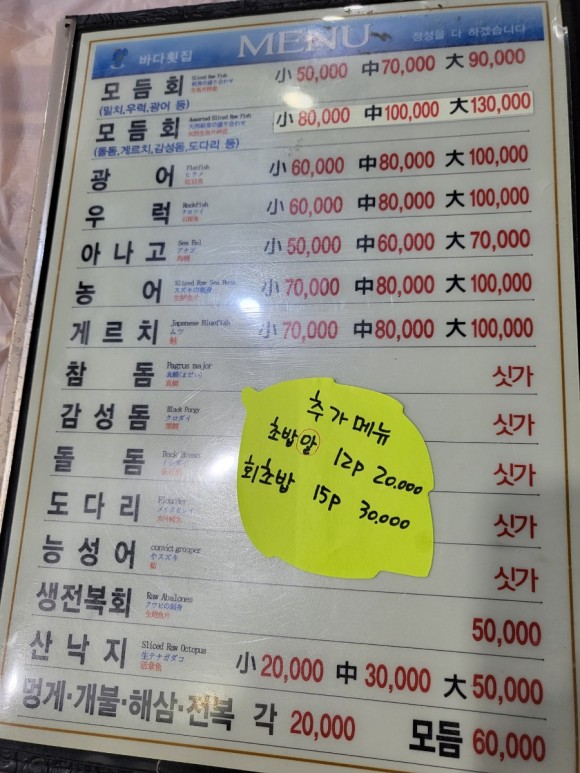 바다횟집 MENU 정성을 다 하겠습니다
모듬회 Sliced Raw Fish 小 50,000 中 70,000 大 90,000
(밀치,우럭,광어 등)
모듬회 Assorted Sliced Raw Fish 小 80,000 中 100,000 大 130,000
(돌돔,게르치,감성돔,도다리 등)
광어 Flatfish ヒラメ 小 60,000 中 80,000 大 100,000
우럭 Rockfish クロソイ 小 60,000 中 80,000 大 100,000
아나고 Sea Eel アナゴ 小 50,000 中 60,000 大 70,000
농어 Sliced Raw Sea Bass スズキの刺身 小 70,000 中 80,000 大 100,000
게르치 Japanese Bluefish ムツ 小 70,000 中 80,000 大 100,000
참돔 Pagrus major 真鯛(まだい) 真鯛 싯가
감성돔 Black Porgy クロダイ 黑鲷 싯가
돌돔 싯가
도다리 Flounder メイタガレイ 싯가
능성어 convict grouper 싯가
생전복회 Raw Abalones アワビの刺身 生鲍鱼片 50,000
산낙지 Sliced Raw Octopus 生テナガダコ 活章鱼 小 20,000 中 30,000 大 50,000
멍게·개불·해삼·전복 각 20,000 모듬 60,000
추가메뉴
초밥알 12P 20.000
회초밥 15P 30.000